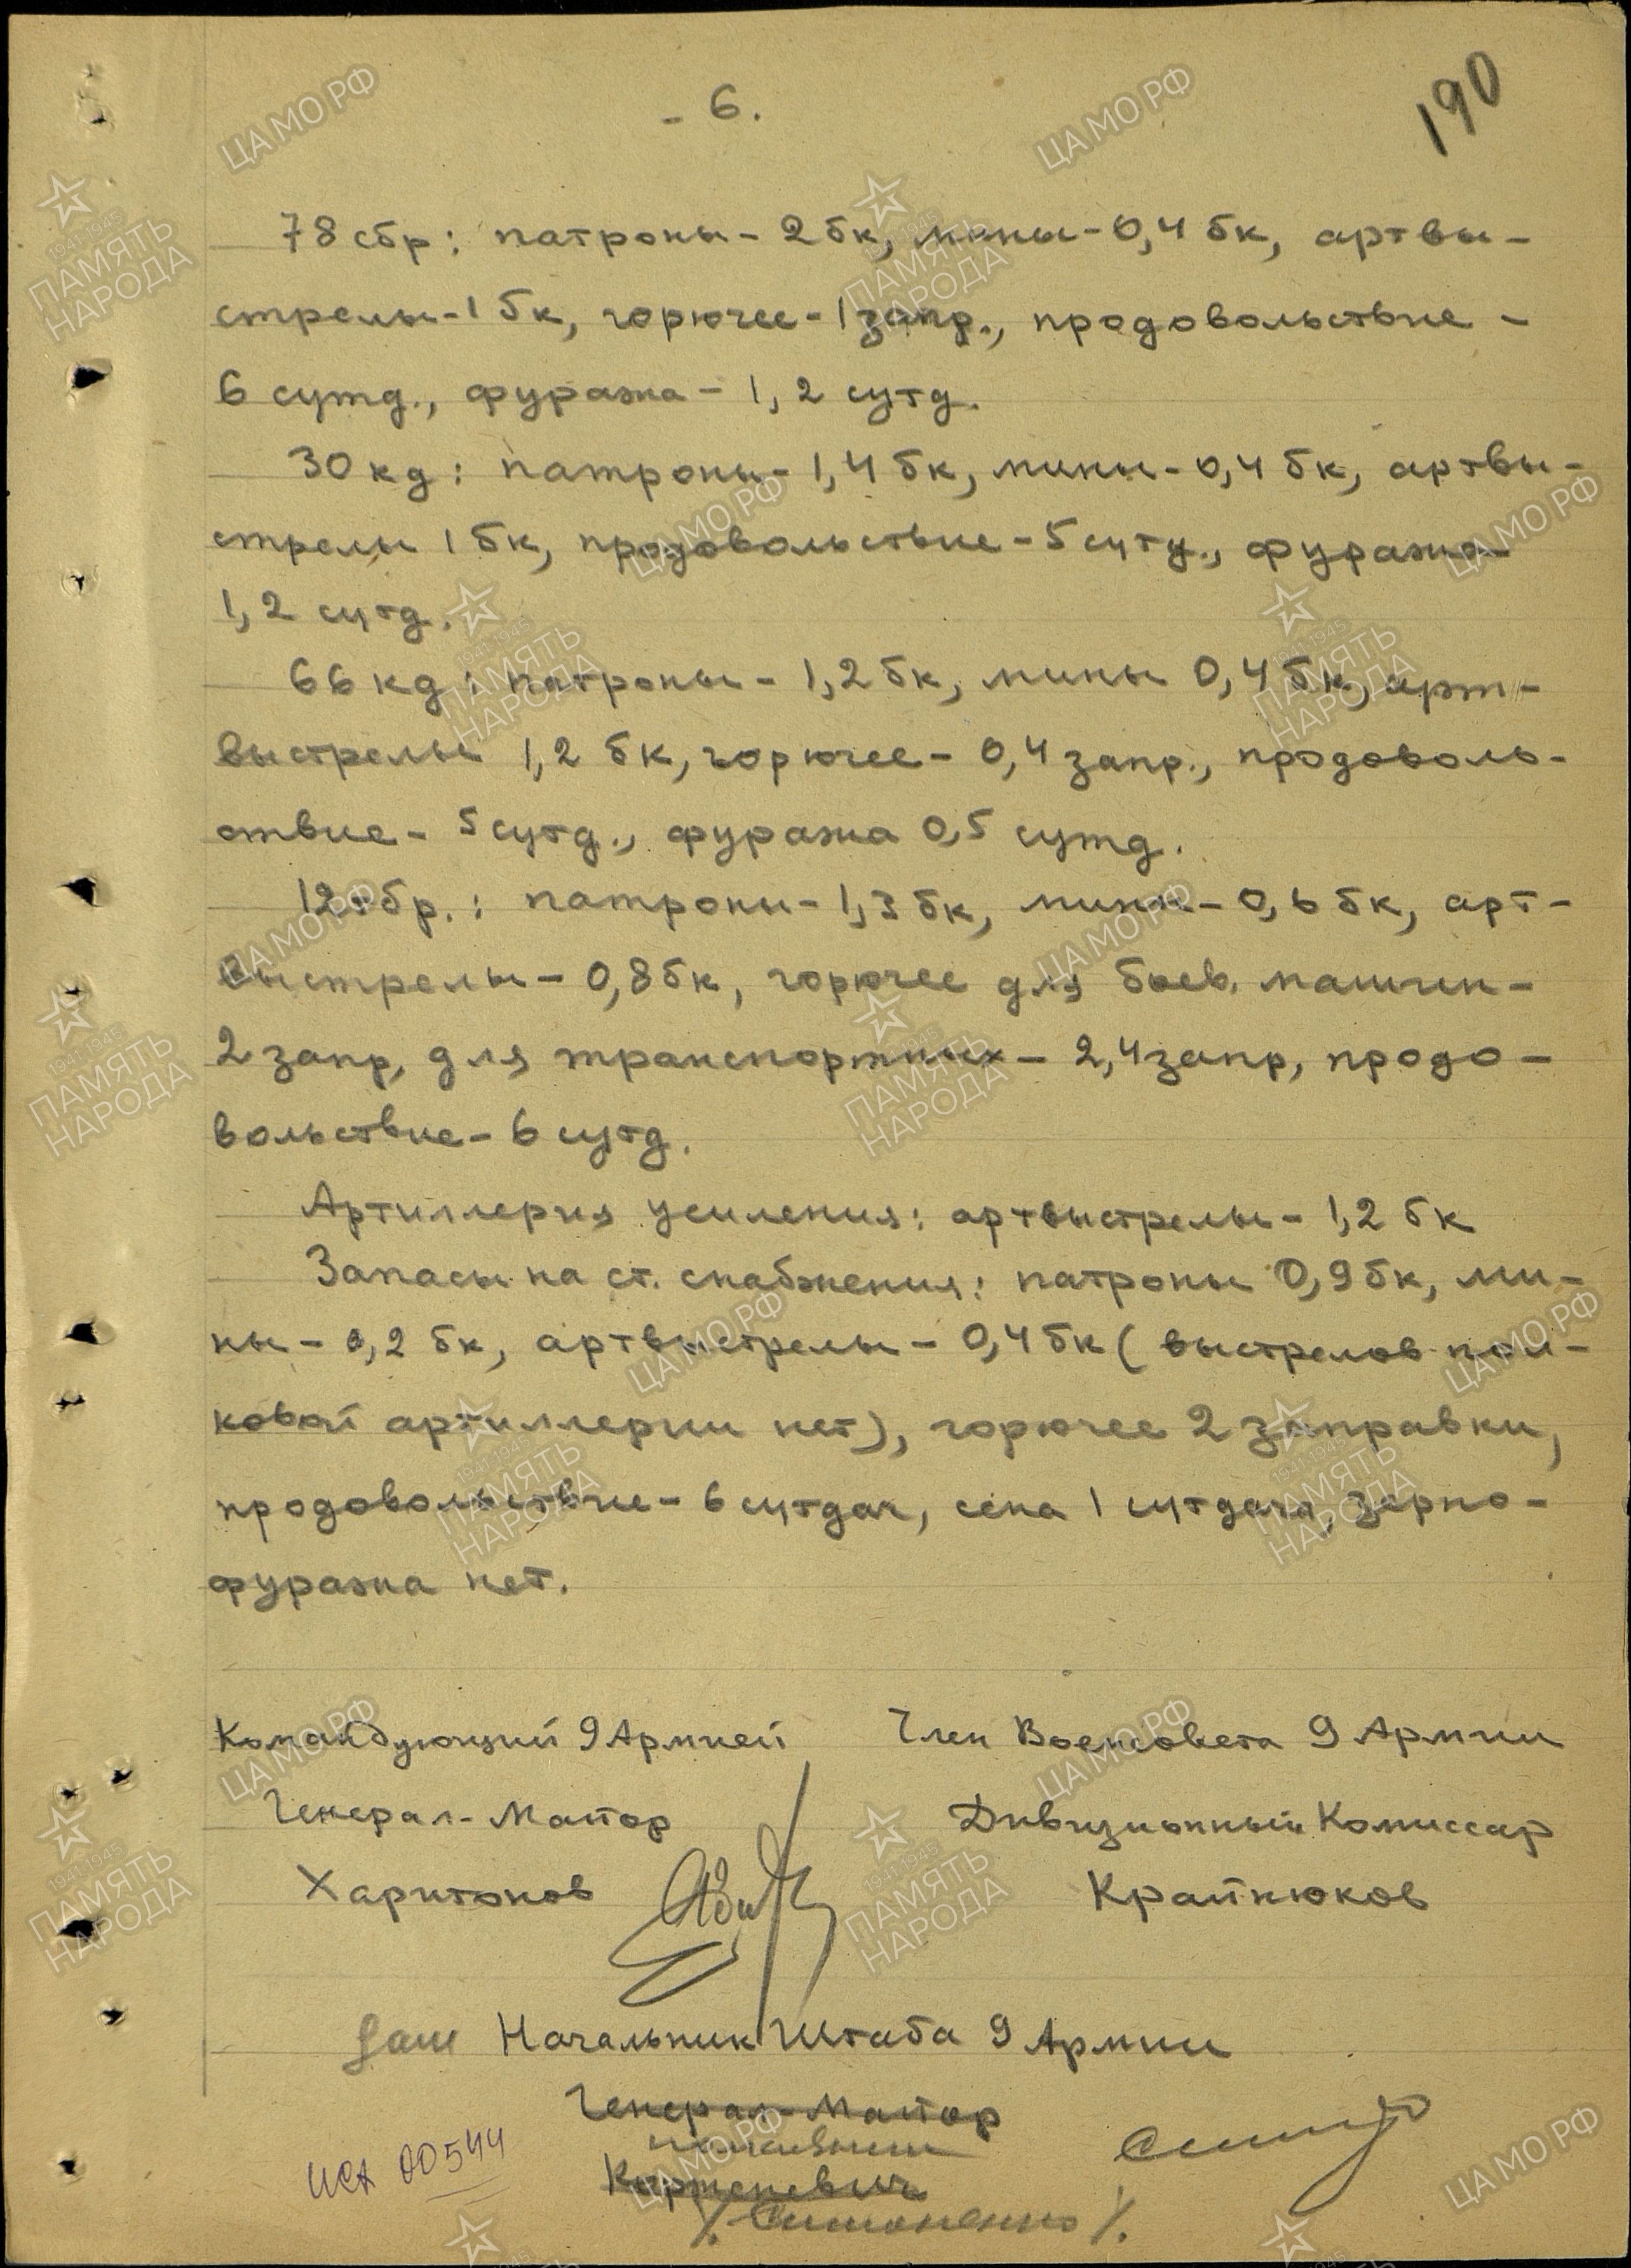 - 6.
190
78 сбр: патроны - 2 бк, мины - 0,4 бк, артвы-
стрелы - 1 бк, горючее - 1 запр., продовольствие -
6 сутд., фуража - 1,2 сутд.
30 кд: патроны - 1,4 бк, мины - 0,4 бк, артвы-
стрелы 1 бк, продовольствие - 5 сутд., фуража
1,2 сутд.
66 кд: патроны - 1,2 бк, мины 0,4 бк, арт-
выстрелы 1,2 бк, горючее - 0,4 запр., продоволь-
ствие - 5 сутд., фуража 0,5 сутд.
12 тбр.: патроны - 1,3 бк, мины - 0,6 бк, арт-
выстрелы - 0,8 бк, горючее для боев. машин -
2 запр, для транспортных - 2,4 запр, продо-
вольствие - 6 сутд.
Артиллерия усиления: артвыстрелы - 1,2 бк
Запасы на ст. снабжения: патроны 0,9 бк, ми-
ны - 0,2 бк, артвыстрелы - 0,4 бк (выстрелов пол-
ковой артиллерии нет), горючее 2 заправки,
продовольствие - 6 сутдач, сена 1 сутдача, зерно-
фуража нет.
Командующий 9 Армией Член Военсовета 9 Армии
Генерал-Майор Дивизионный Комиссар
Харитонов Крайнюков
Начальник Штаба 9 Армии
Генерал-Майор
полковник
Корженевич
/. Симоненко /.
исх 00544
ЦАМО РФ
1941-1945
ПАМЯТЬ
НАРОДА